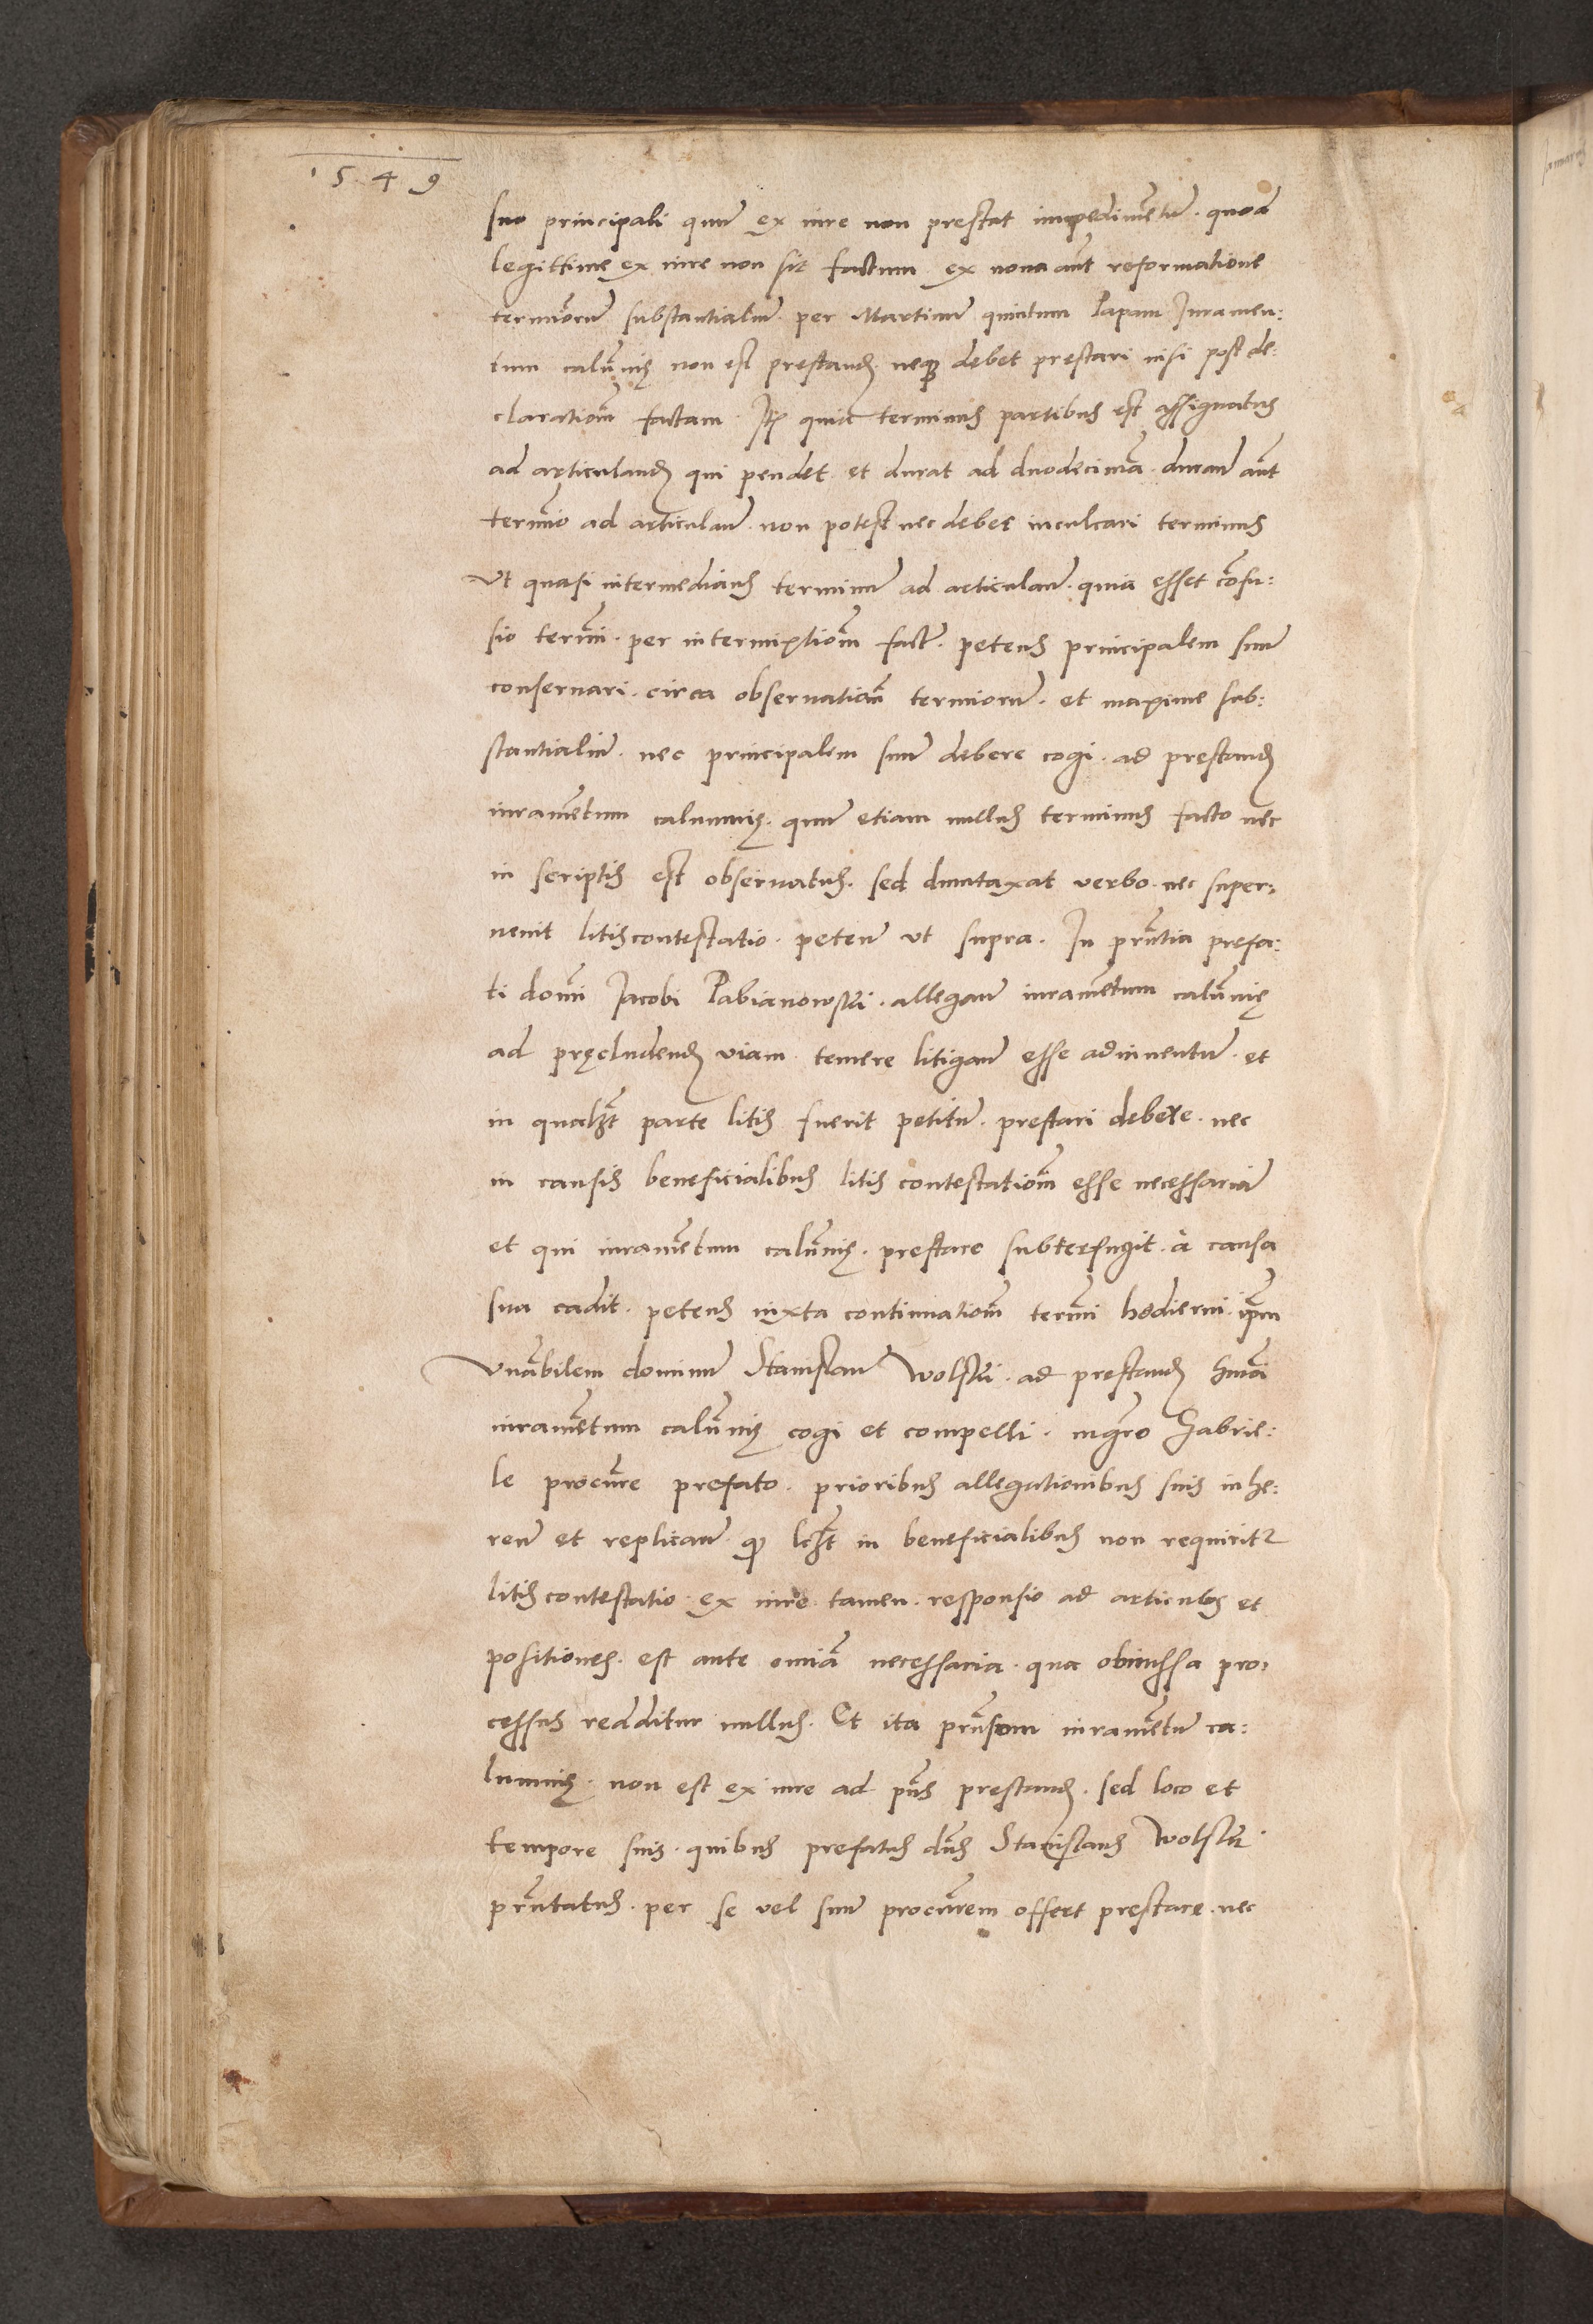 1549
suo principali quum ex iure non prestat impedimẽtũ. quod
legittime ex iure non sit factum. ex noua aũt reformatione
termiorũ substantialiũ per Martinũ quintum Papam Iuramen:
tum calũnię non est prestandũ neqꝫ debet prestari nisi post de:
claratiõem factam. Itẽ quia terminus partibus est assignatus
ad articulandũ qui pendet et durat ad duodecimã. durañ aũt
termĩo ad articulañ. non potest nec debet inculcari terminus
vt quasi intermedians terminũ ad articulañ. quia esset cõfu:
sio termĩ. per intermixtiõem factã. petens principalem suũ
conseruari. circa obseruatiõem termiorũ. et maxime sub:
stantialiũ. nec principalem suũ debere cogi. ad prestandũ
iuramẽtum calumnię. quum etiam nullus terminus facto nec
in scriptis est obseruatus. sed duntaxat verbo. nec super:
uenit litiscontestatio. peteñ vt supra. In prñtia prefa:
ti domĩ Iacobi Pabianowski. allegañ iuramẽtum calũnię
ad pręcludendũ viam temere litigañ esse adinuentũ. et
in qualꝫt parte litis fuerit petitũ. prestari debere. nec
in causis beneficialibus litis contestatiõem esse necessariã
et qui iuramẽtum calũnię. prestare subterfugit. à causa
sua cadit. petens iuxta continuatiõem termĩ hodierni. ipm̃
vnãbilem dominũ Stanislaũ Wolski. ad prestandũ hmõi
iuramẽtum calũnię cogi et compelli. mgr̃o Gabrie:
le procũre prefato. prioribus allegationibus suis inhe:
reñ et replicañ. qꝫ lcꝫt in beneficialibus non requirit²
litiscontestatio. ex iure tamen. responsio ad articulos et
positiones. est ante omiã necessaria. qua obmissa pro:
cessus redditur nullus. Et ita prũsom iuramẽtũ ca:
lumnię. non est ex iure ad prñs prestandũ. sed loco et
tempore suis. quibus prefatus dñs Stanislaus Wolski
prñtatus. per se vel suũ procũrem offert prestare. nec